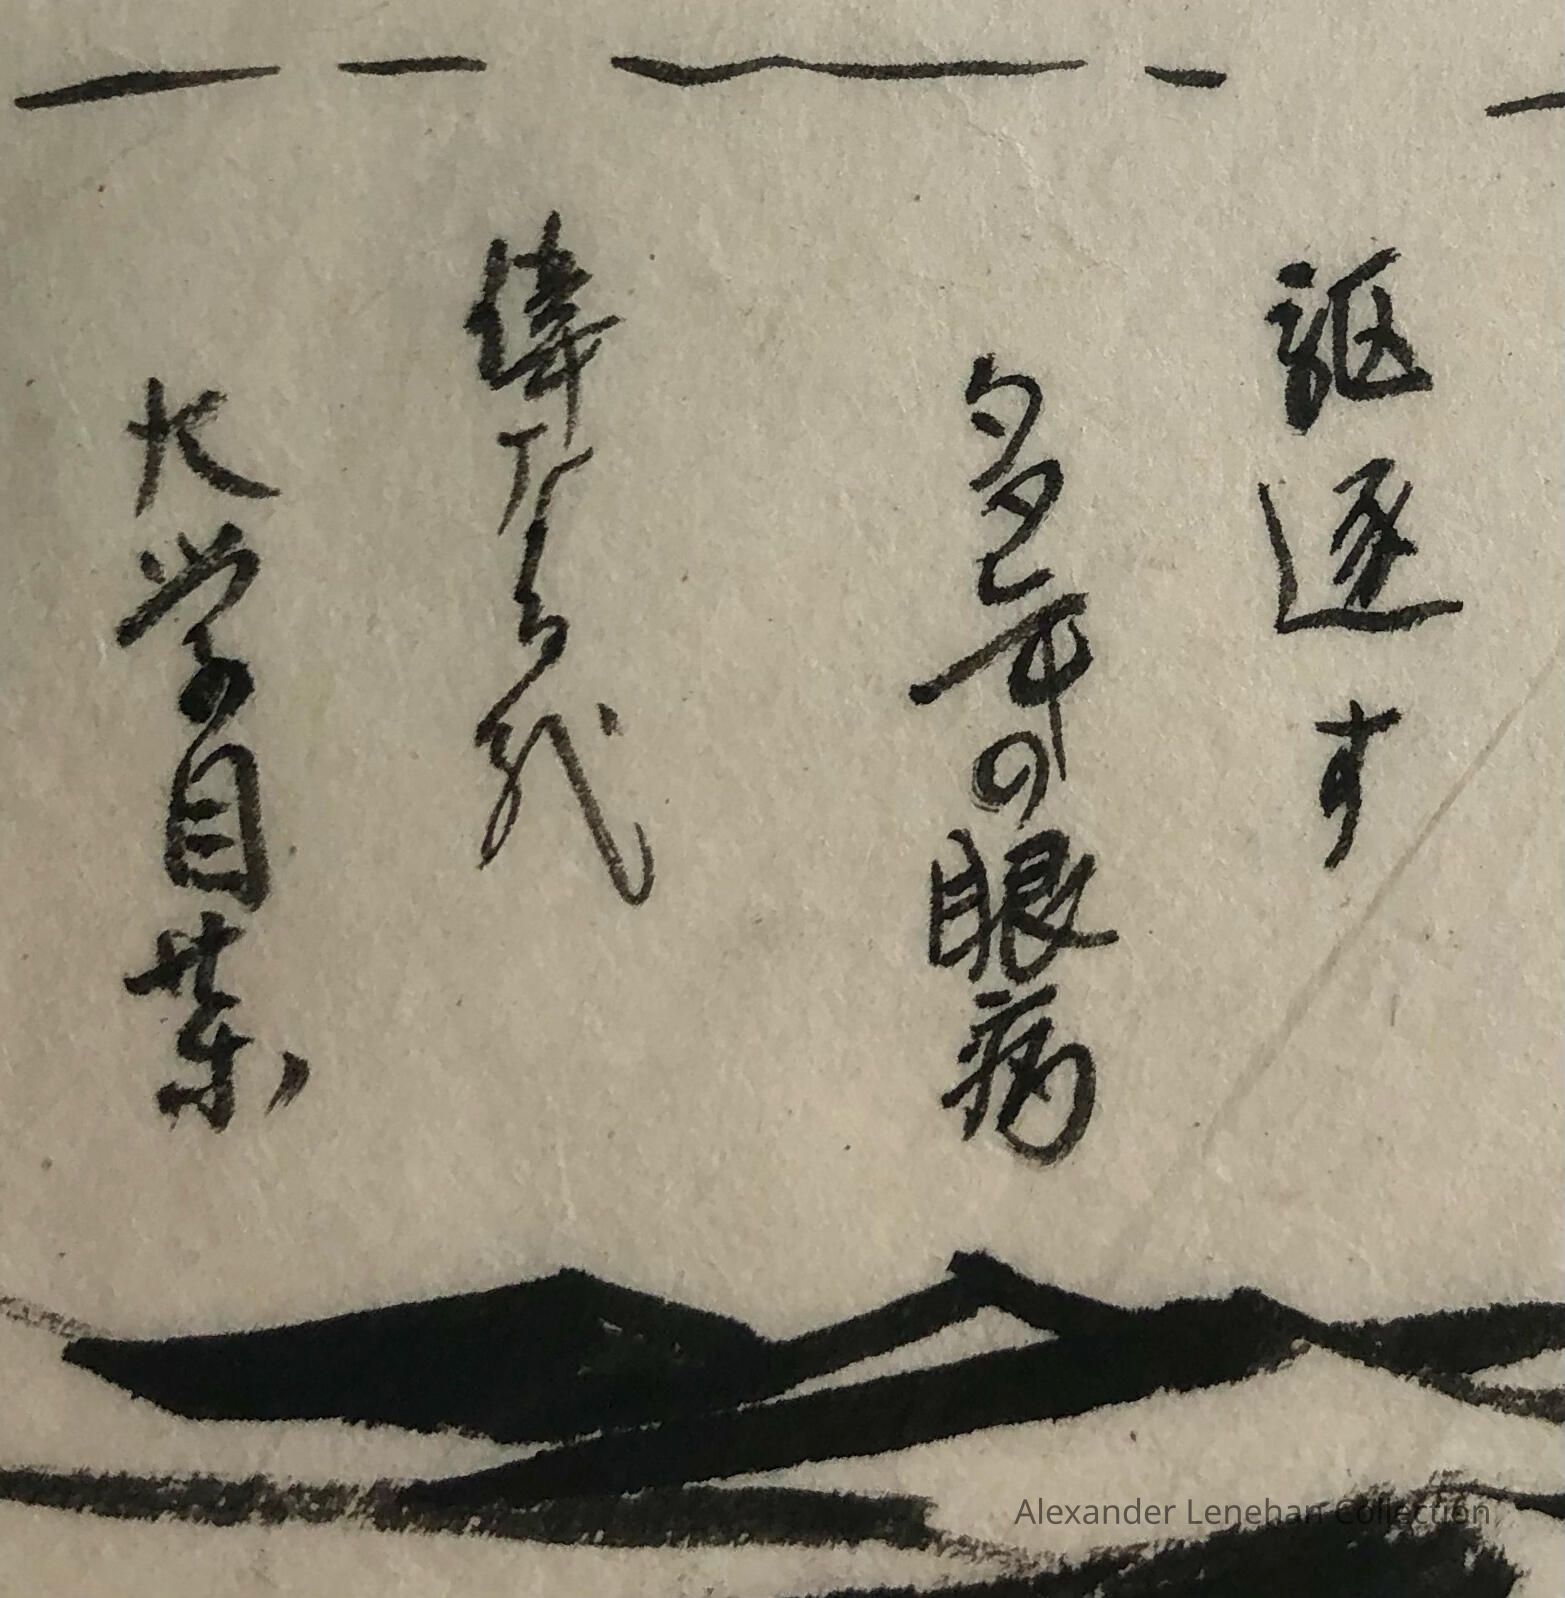 駆逐す
多年の眼病
偉なる哉
大学目薬
Alexander Lenehan Collection